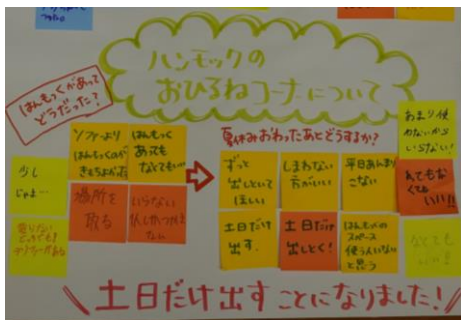 ハンモックの
おひるねコーナーについて
はんもっくがあって
どうだった?
ソファーより
はんもっくのが
はんもっく
あっても
なくても…
少し
じゃま…
場所を
取る
いらない
夏休みおわったあとどうするか?
ずっと
出しといて
ほしい
しまわない
方がいい
平日あんまり
こない
土日だけ
出す.
土日だけ
出しとく!
はんもっくの
スペース
使う人いない
と思う
あまり使
わないから
いらない!
なくても
土日だけ出すことになりました!